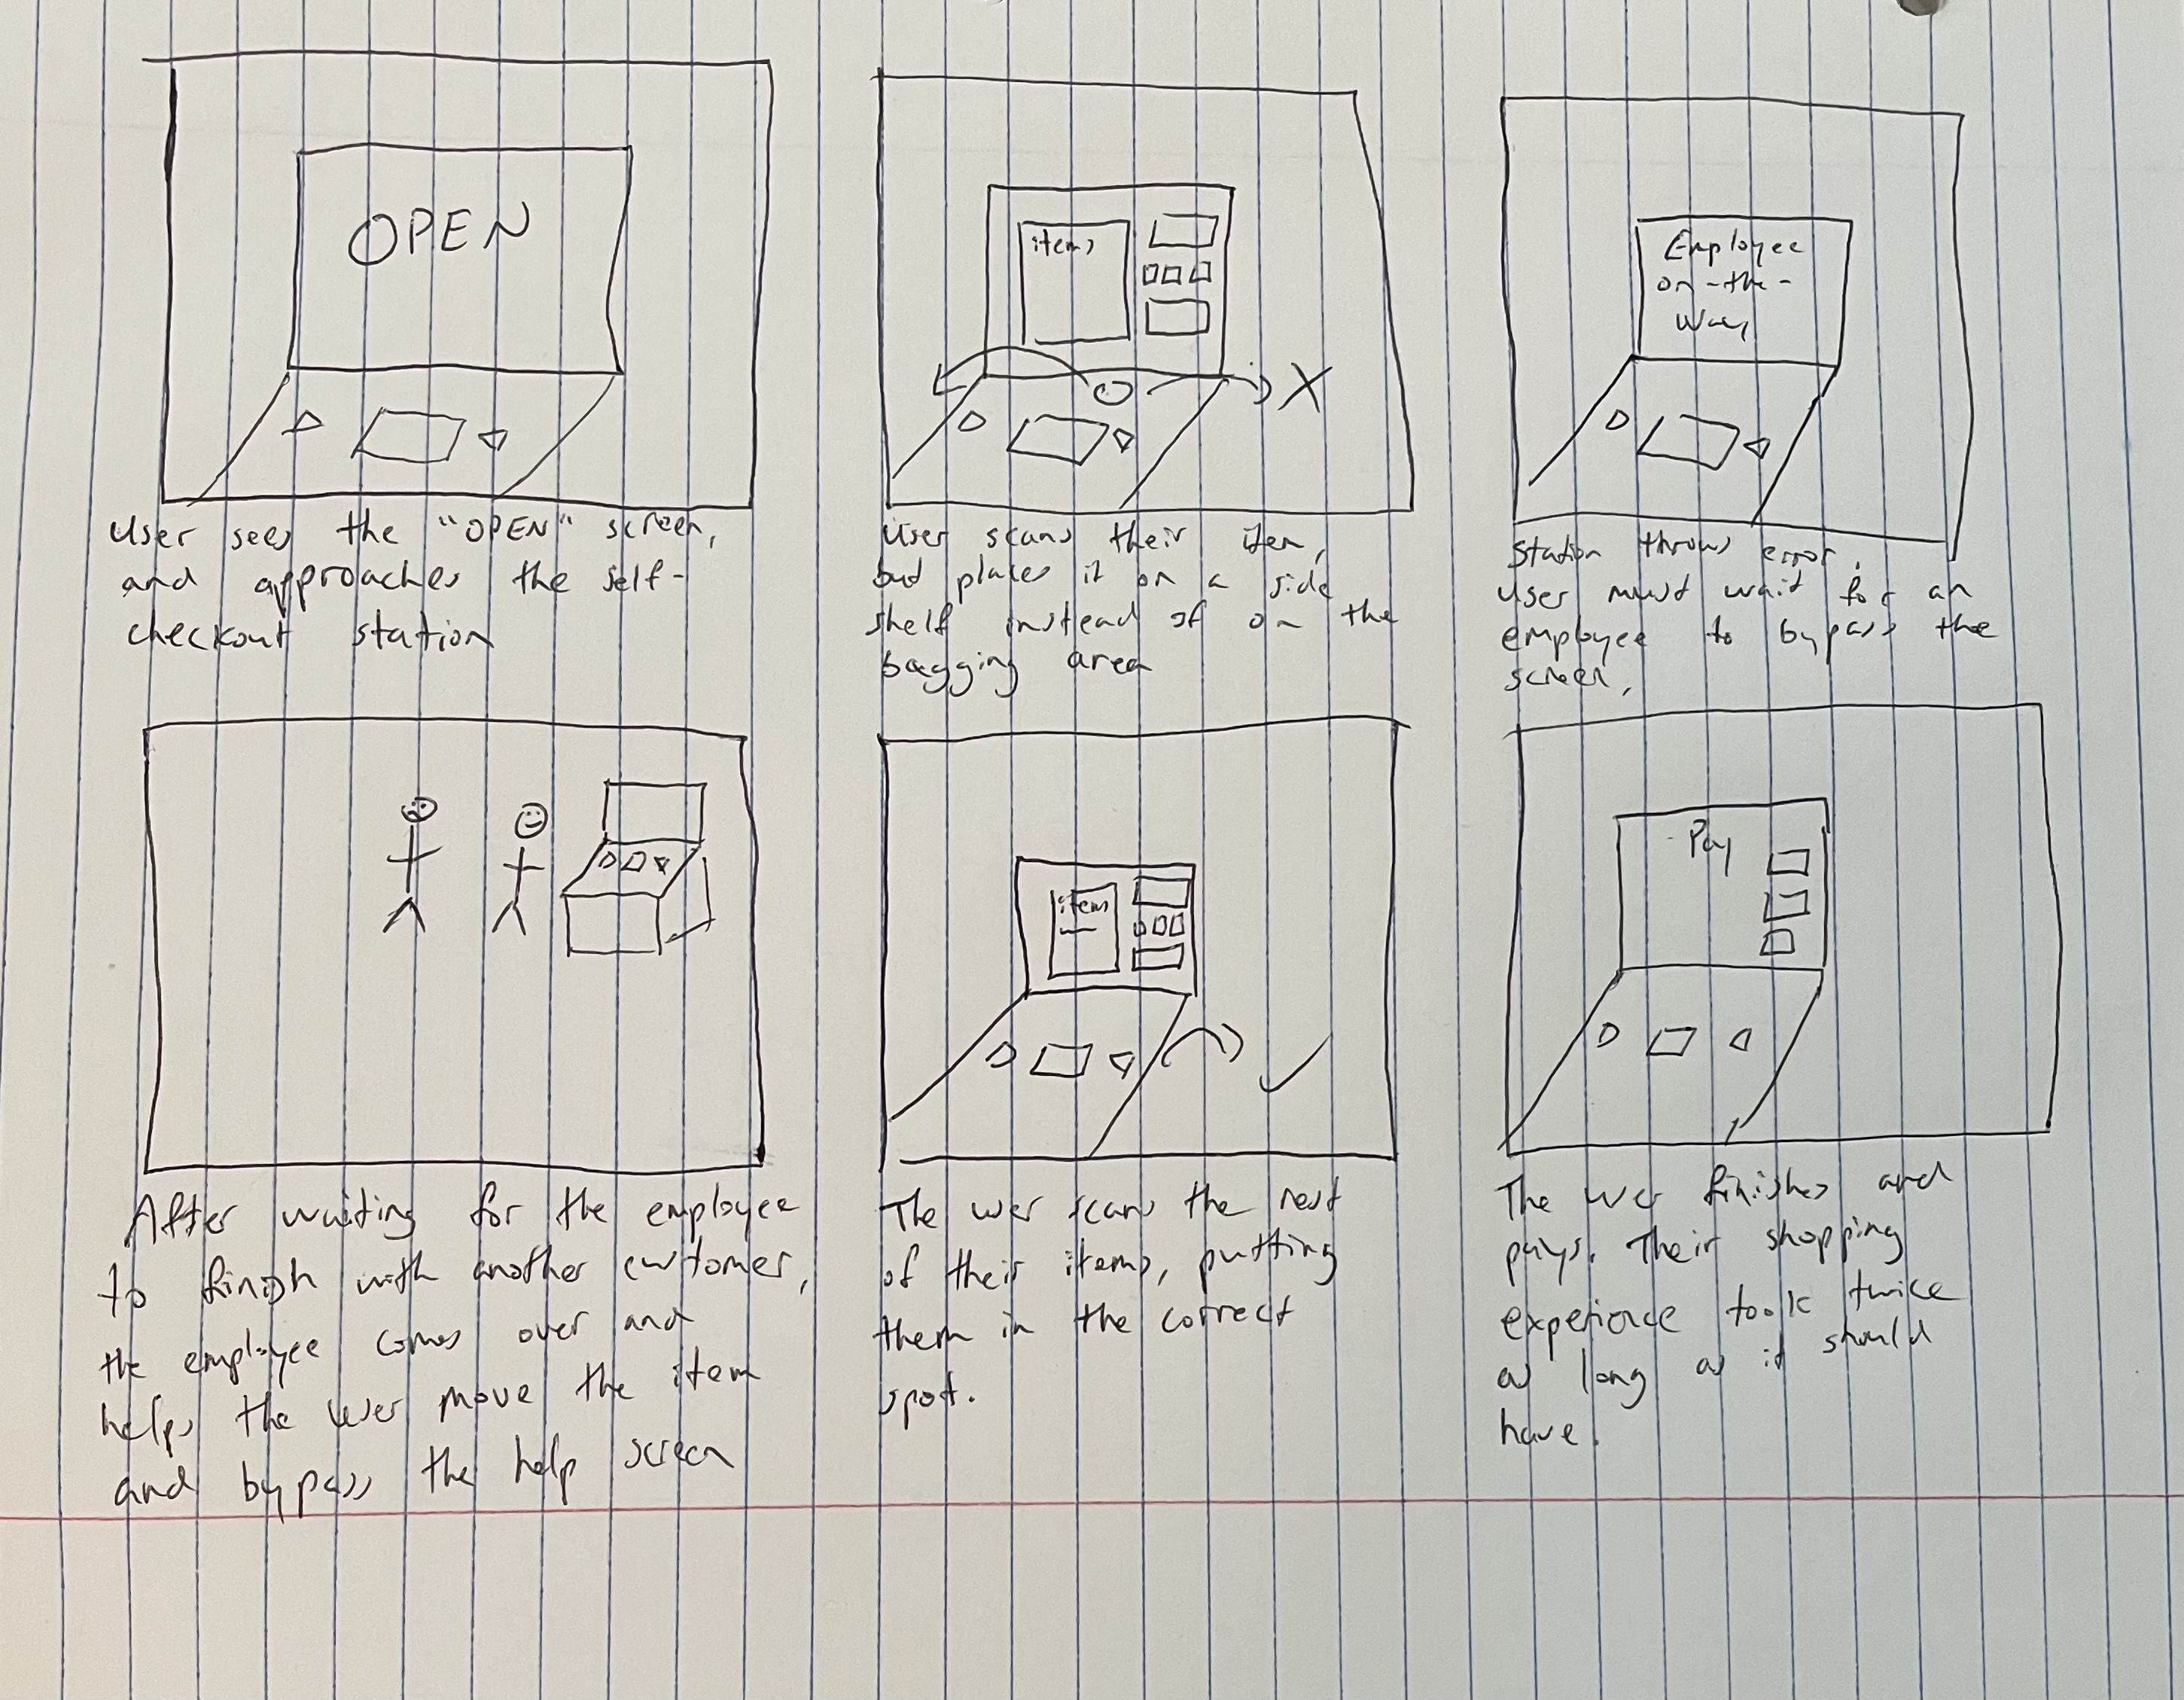 OPEN
User sees the "OPEN" screen,
and approaches the self-
checkout station
items
User scans their item,
but places it on a side
shelf instead of on the
bagging area
Employee
on-the-
way
Station throws error.
User must wait for an
employee to bypass the
screen.
After waiting for the employee
to finish with another customer,
the employee comes over and
helps the user move the item
and bypass the help screen
items
The user scans the rest
of their items, putting
them in the correct
spot.
Pay
The user finishes and
pays. Their shopping
experience took twice
as long as it should
have.